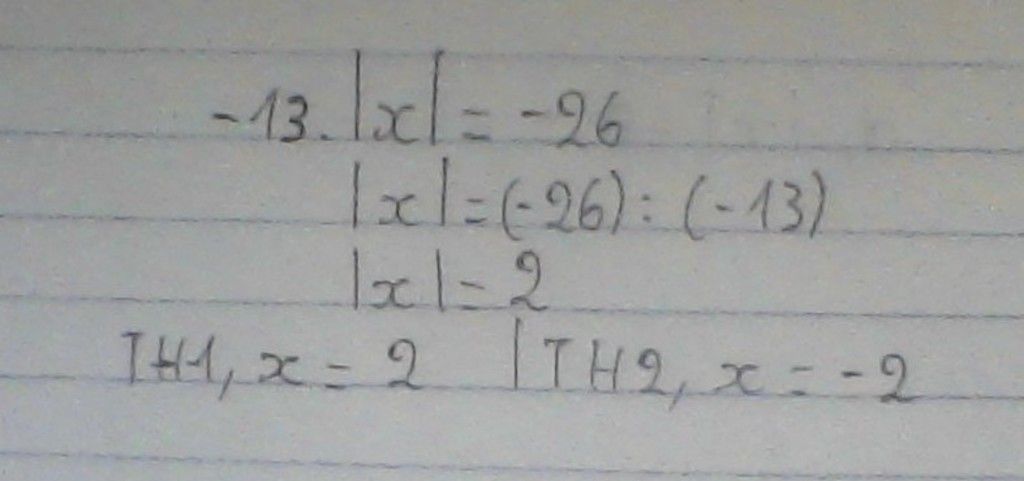 -13. |x| = -26
|x| = (-26) : (-13)
|x| = 2
TH1, x = 2 | TH2, x = -2